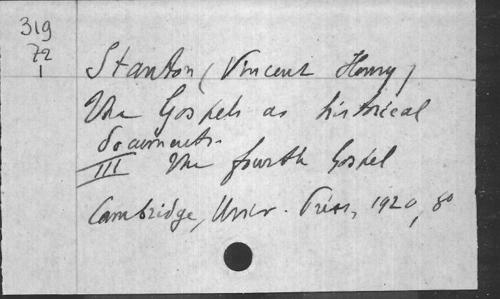 319
72
1
Stanton (Vincent Henry)
The Gospels as historical
documents.
III The fourth Gospel
Cambridge, Univ. Press, 1920, 8º